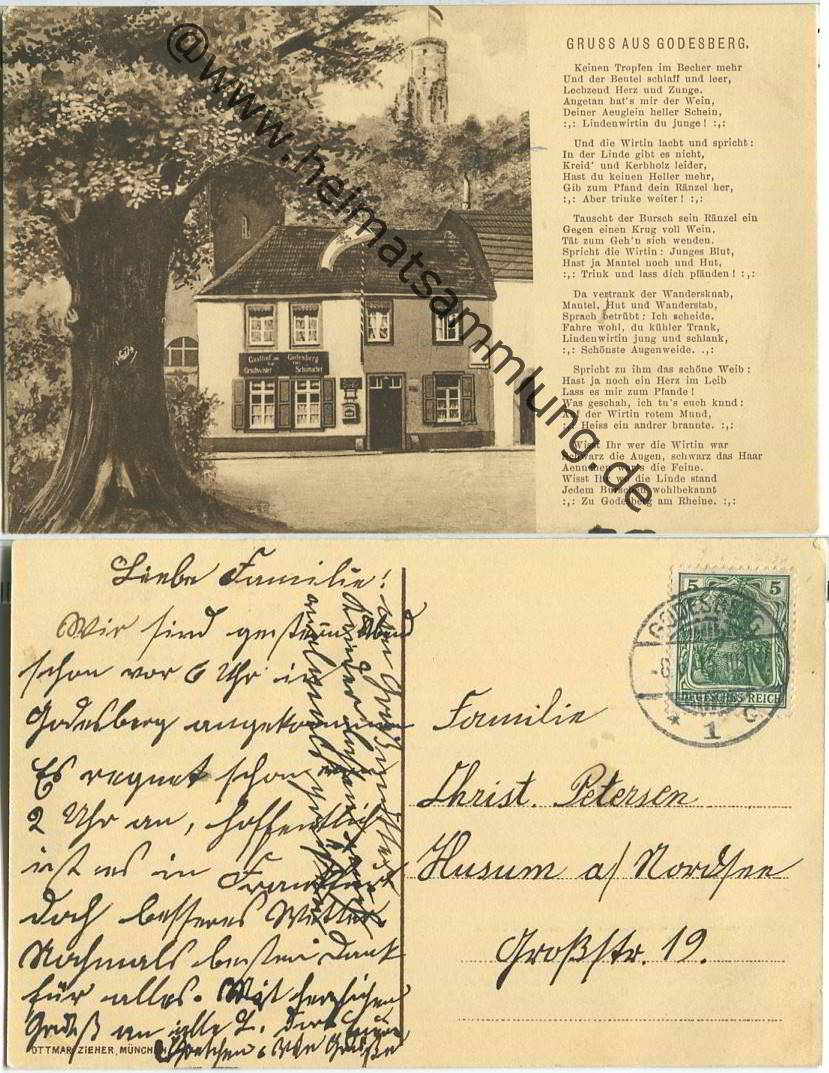 GRUSS AUS GODESBERG.
Keinen Tropfen im Becher mehr
Und der Beutel schlaff und leer,
Lechzend Herz und Zunge.
Angetan hat's mir der Wein,
Deiner Aeuglein heller Schein,
:,: Lindenwirtin du junge! :,:
Und die Wirtin lacht und spricht:
In der Linde gibt es nicht,
Kreid' und Kerbholz leider,
Hast du keinen Heller mehr,
Gib zum Pfand dein Ränzel her,
:,: Aber trinke weiter! :,:
Tauscht der Bursch sein Ränzel ein
Gegen einen Krug voll Wein,
Tät zum Geh'n sich wenden.
Spricht die Wirtin: Junges Blut,
Hast ja Mantel noch und Hut,
:,: Trink und lass dich pfänden! :,:
Da vertrank der Wandersknab,
Mantel, Hut und Wanderstab,
Sprach betrübt: Ich scheide.
Fahre wohl, du kühler Trank,
Lindenwirtin jung und schlank,
:,: Schönste Augenweide. :,:
Spricht zu ihm das schöne Weib:
Hast ja noch ein Herz im Leib
Lass es mir zum Pfande!
Was geschah, ich tu's euch knnd:
Auf der Wirtin rotem Mund,
:,: Heiss ein andrer brannte. :,:
Wisst Ihr wer die Wirtin war
Schwarz die Augen, schwarz das Haar
Aennchen war's die Feine.
Wisst Ihr wo die Linde stand
Jedem Burschen wohlbekannt
:,: Zu Godesberg am Rheine. :,:
Gasthof Godesberg
Geschwister Schumacher
@www.heimatsammlung.de
Liebe Familie!
Wir sind gestern Abend
schon vor 6 Uhr in
Godesberg angekommen
Es regnet schon
2 Uhr an, hoffentlich
ist es in Frankfurt
doch besseres Wetter.
Nochmals besten Dank
für alles. Mit herzlichen
Gruß an alle
OTTMAR ZIEHER, MÜNCHEN
5 5
DEUTSCHES REICH
GODESBERG
* 1 C
Familie
Christ. Petersen
Husum a/ Nordsee
Großstr. 19.